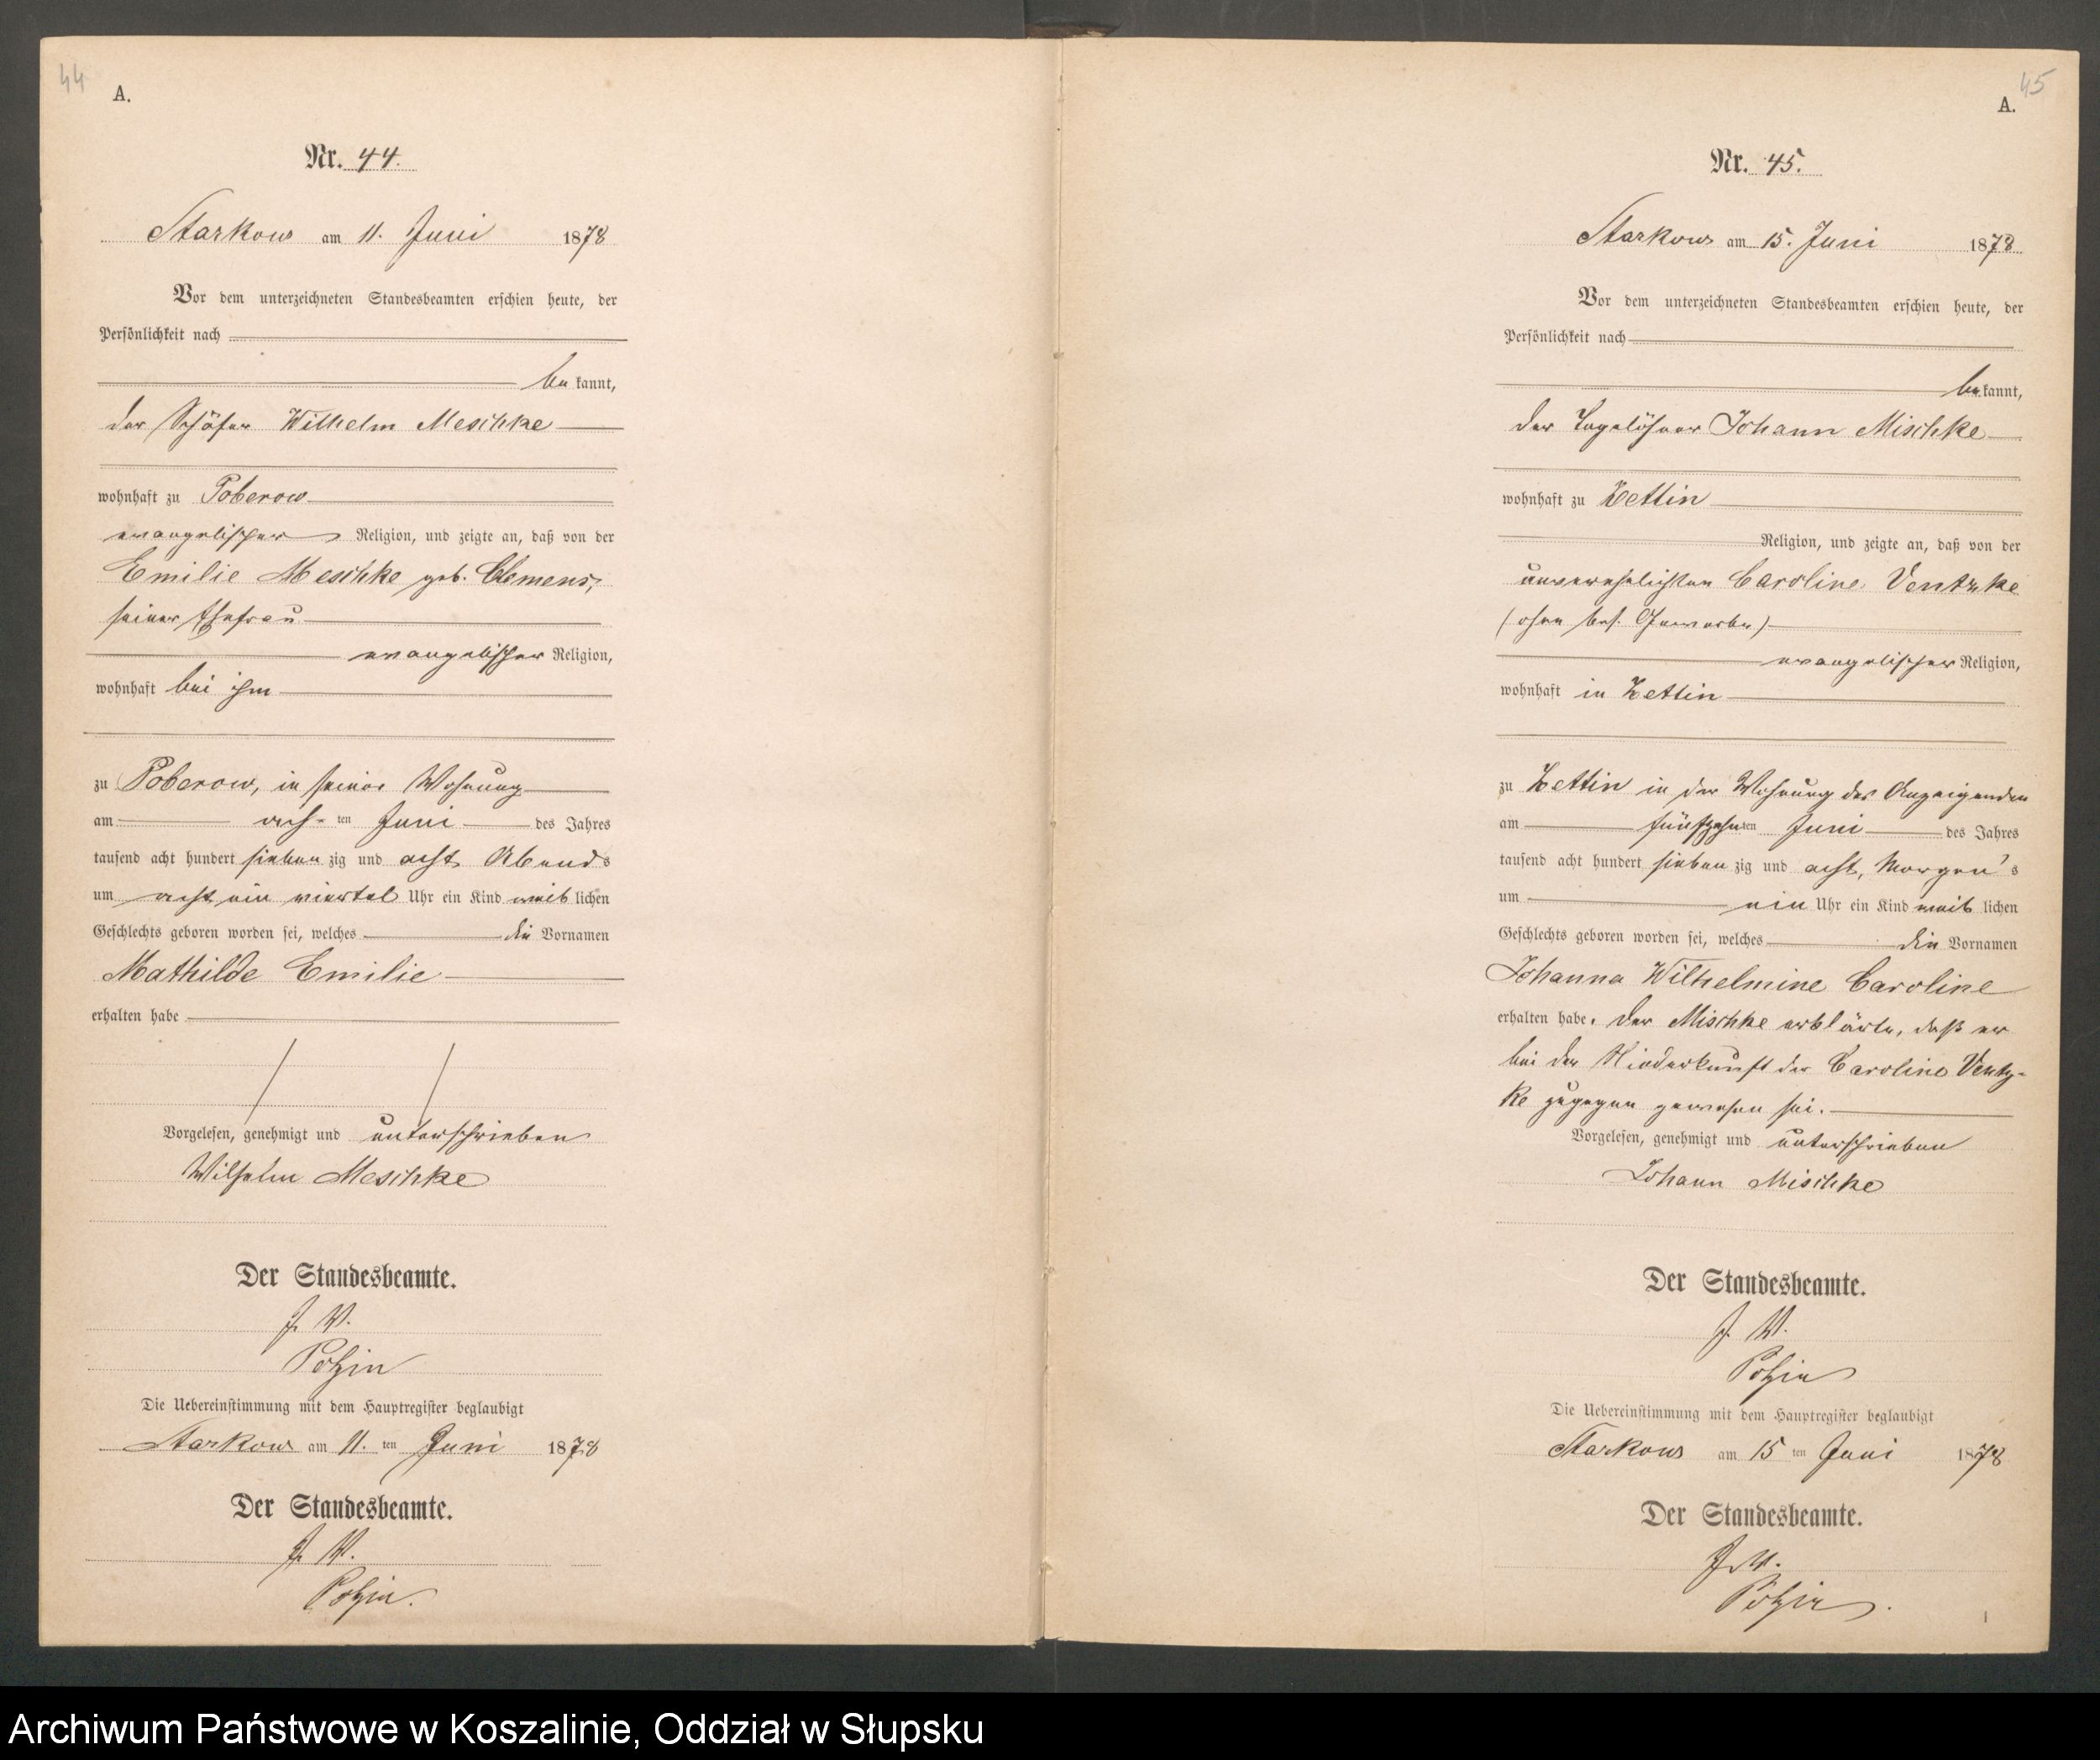 44
A.
Nr. 44.
Starkow am 11. Juni 1878
Vor dem unterzeichneten Standesbeamten erschien heute, der
Persönlichkeit nach
bekannt,
der Schäfer Wilhelm Meschke
wohnhaft zu Poberow
evangelischer Religion, und zeigte an, daß von der
Emilie Meschke geb. Clemens,
seiner Ehefrau
evangelischer Religion,
wohnhaft bei ihm
zu Poberow, in seiner Wohnung
am achten Juni des Jahres
tausend acht hundert siebenzig und acht Abends
um acht ein viertel Uhr ein Kind weiblichen
Geschlechts geboren worden sei, welches die Vornamen
Mathilde Emilie
erhalten habe
Vorgelesen, genehmigt und unterschrieben
Wilhelm Meschke
Der Standesbeamte.
J. V.
Potzin
Die Uebereinstimmung mit dem Hauptregister beglaubigt
Starkow am 11.ten Juni 1878
Der Standesbeamte.
J. V.
Potzin.
45
A.
Nr. 45.
Starkow am 15. Juni 1878
Vor dem unterzeichneten Standesbeamten erschien heute, der
Persönlichkeit nach
bekannt,
der Tagelöhner Johann Mischke
wohnhaft zu Zettin
Religion, und zeigte an, daß von der
unverehelichten Caroline Ventzke
(ohne bes. Gewerbe)
evangelischer Religion,
wohnhaft in Zettin
zu Zettin in der Wohnung des Anzeigenden
am fünfzehnten Juni des Jahres
tausend acht hundert siebenzig und acht, Morgen's
um ein Uhr ein Kind weiblichen
Geschlechts geboren worden sei, welches die Vornamen
Johanna Wilhelmine Caroline
erhalten habe. Der Mischke erklärte, daß er
bei der Niederkunft der Caroline Ventz-
ke zugegen gewesen sei.
Vorgelesen, genehmigt und unterschrieben
Johann Mischke
Der Standesbeamte.
J. V.
Potzin
Die Uebereinstimmung mit dem Hauptregister beglaubigt
Starkow am 15ten Juni 1878
Der Standesbeamte.
J. V.
Potzin.
Archiwum Państwowe w Koszalinie, Oddział w Słupsku